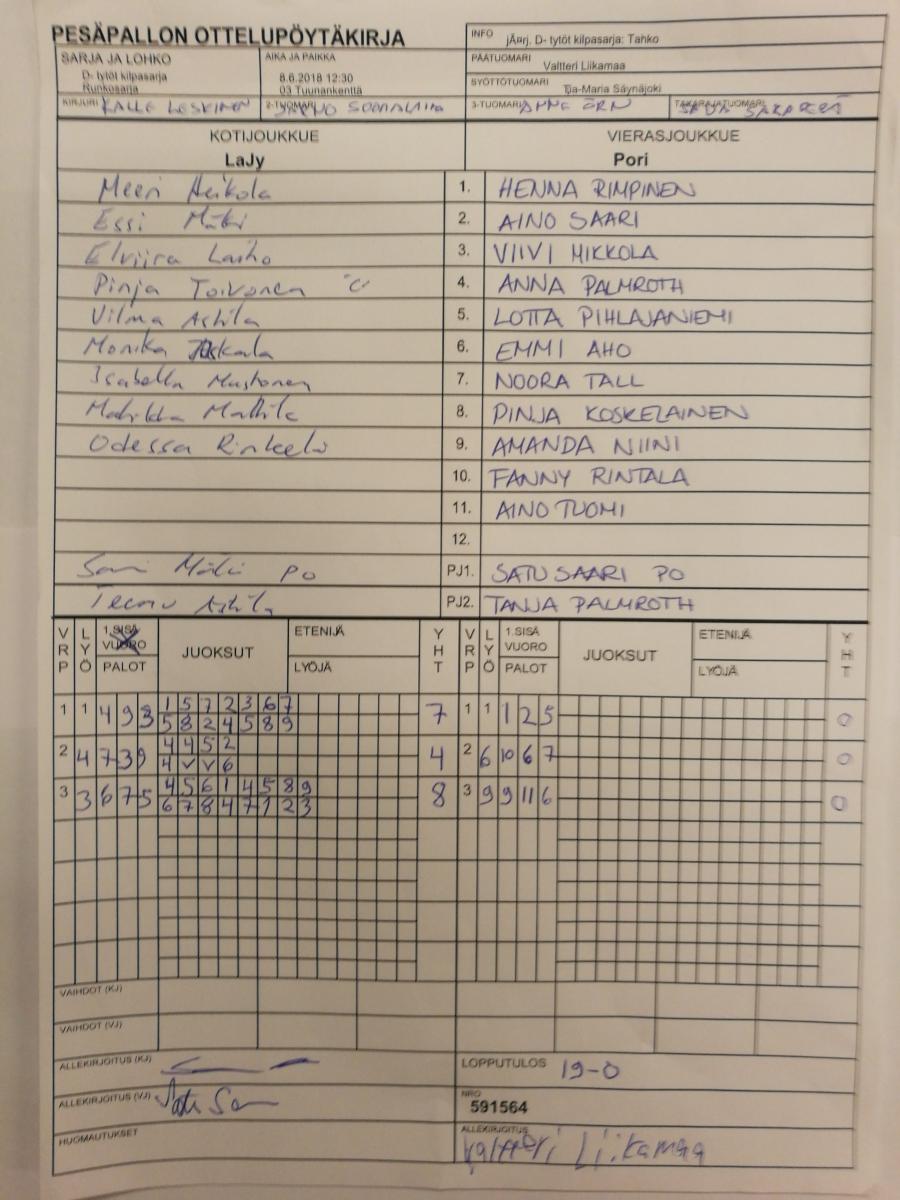 PESÄPALLON OTTELUPÖYTÄKIRJA
INFO jÄ¤rj. D- tytöt kilpasarja: Tahko
SARJA JA LOHKO
D- tytöt kilpasarja
Runkosarja
AIKA JA PAIKKA
8.6.2018 12:30
03 Tuunankenttä
PÄÄTUOMARI Valtteri Liikamaa
SYÖTTÖTUOMARI
Tia-Maria Säynäjoki
KIRJURI KALLE LESKINEN 2-TUOMARI 3-TUOMARI ANNE ÖRN TAKARAJATUOMARI
KOTIJOUKKUE VIERASJOUKKUE
LaJy Pori
Meeri Heikola 1. HENNA RIMPINEN
Essi Mäki 2. AINO SAARI
Elviira Laiho 3. VIIVI MIKKOLA
Pinja Toivonen "C" 4. ANNA PALMROTH
Vilma Astila 5. LOTTA PIHLAJANIEMI
Monika 6. EMMI AHO
Isabella Mustonen 7. NOORA TALL
Matilda Mattila 8. PINJA KOSKELAINEN
Odessa Rinkelö 9. AMANDA NIINI
10. FANNY RINTALA
11. AINO TUOMI
12.
Sami Mäki PO PJ1. SATU SAARI PO
Teemu Astila PJ2. TANJA PALMROTH
VRP LYÖ 1.SISÄ VUORO PALOT JUOKSUT ETENIJÄ LYÖJÄ YHT VRP LYÖ 1.SISÄ VUORO PALOT JUOKSUT ETENIJÄ LYÖJÄ YHT
1 1 4 9 3 1 5 7 2 3 6 7 7 1 1 1 2 5 0
5 8 2 4 5 8 9
2 4 7 3 9 4 4 5 2 4 2 6 10 6 7 0
4 V V 6
3 3 6 7 5 4 5 6 1 4 5 8 9 8 3 9 9 11 6 0
6 7 8 4 7 1 2 3
VAIHDOT (KJ)
VAIHDOT (VJ)
ALLEKIRJOITUS (KJ) LOPPUTULOS 19-0
ALLEKIRJOITUS (VJ) NRO
591564
HUOMAUTUKSET ALLEKIRJOITUS
Valtteri Liikamaa